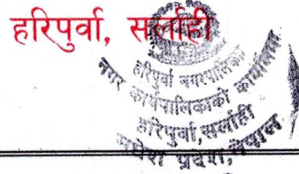 हरिपुर्वा, सर्लाही
हरिपुर्वा नगरपालिका
नगर कार्यपालिकाको कार्यालय
हरिपुर्वा, सर्लाही
मधेश प्रदेश, नेपाल